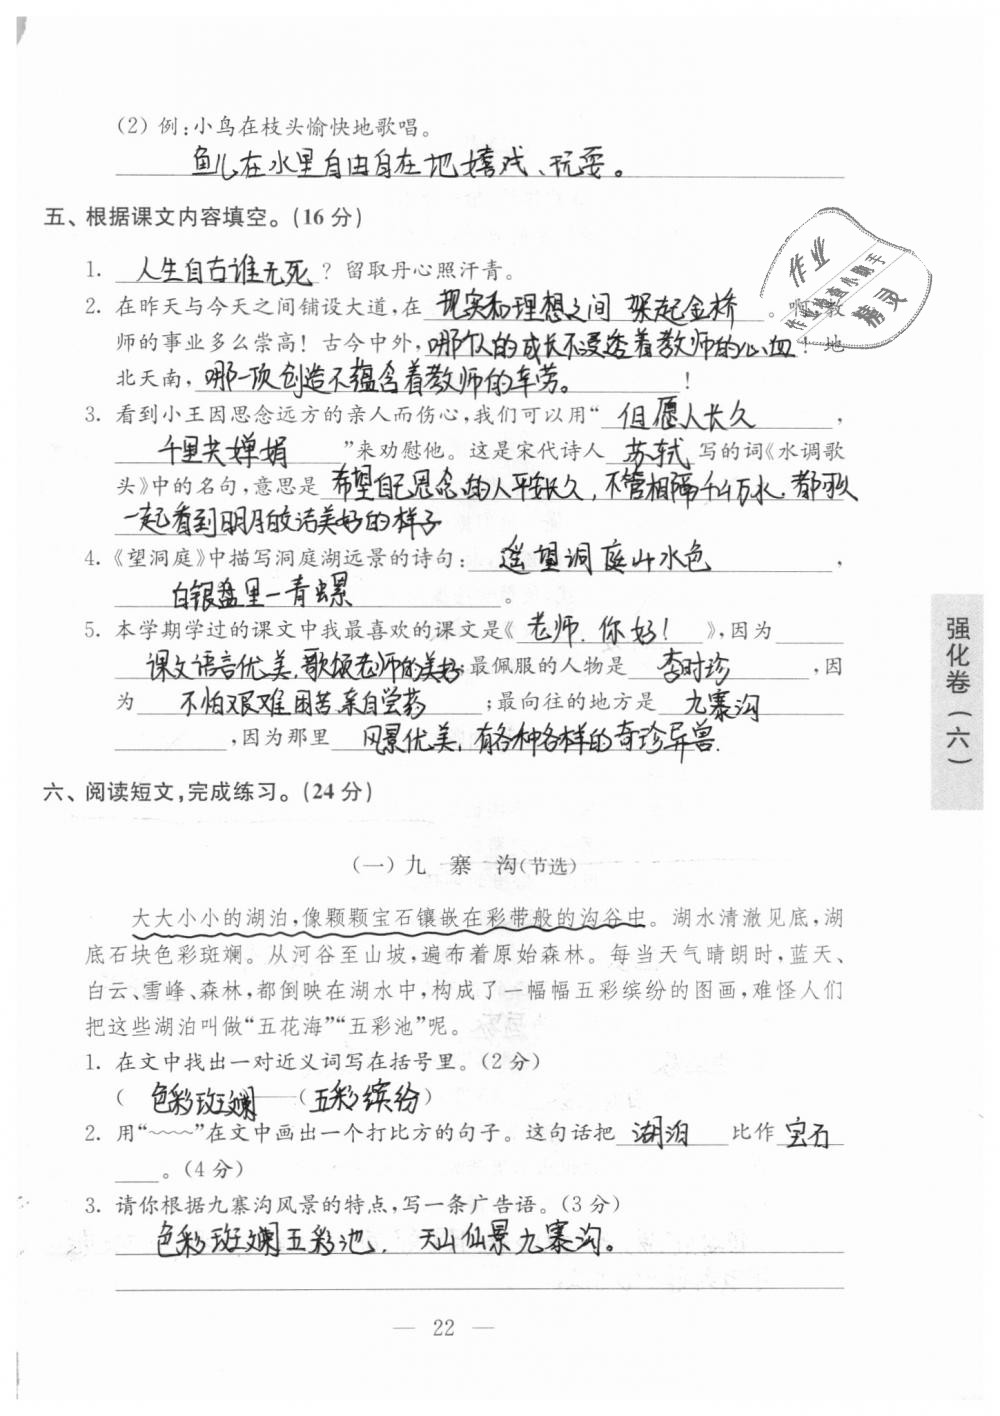 (2) 例:小鸟在枝头愉快地歌唱。
鱼儿在水里自由自在地嬉戏、玩耍。
五、根据课文内容填空。(16分)
1. 人生自古谁无死?留取丹心照汗青。
2. 在昨天与今天之间铺设大道,在 现实和理想之间 架起金桥。啊,教
师的事业多么崇高!古今中外,哪个人的成长不浸透着教师的心血!地
北天南,哪一项创造不蕴含着教师的辛劳。!
3. 看到小王因思念远方的亲人而伤心,我们可以用“但愿人长久,
千里共婵娟”来劝慰他。这是宋代诗人 苏轼 写的词《水调歌
头》中的名句,意思是 希望自己思念的人平安长久,不管相隔千山万水,都可以
一起看到明月皎洁美好的样子
4. 《望洞庭》中描写洞庭湖远景的诗句:遥望洞庭山水色,
白银盘里一青螺。
5. 本学期学过的课文中我最喜欢的课文是《老师.你好!》,因为
课文语言优美,歌颂老师的美好;最佩服的人物是 李时珍,因
为 不怕艰难困苦亲自尝药;最向往的地方是 九寨沟
,因为那里 风景优美,有各种各样的奇珍异兽.
六、阅读短文,完成练习。(24分)
(一)九 寨 沟(节选)
大大小小的湖泊,像颗颗宝石镶嵌在彩带般的沟谷中。湖水清澈见底,湖
底石块色彩斑斓。从河谷至山坡,遍布着原始森林。每当天气晴朗时,蓝天、
白云、雪峰、森林,都倒映在湖水中,构成了一幅幅五彩缤纷的图画,难怪人们
把这些湖泊叫做“五花海”“五彩池”呢。
1. 在文中找出一对近义词写在括号里。(2分)
( 色彩斑斓——(五彩缤纷)
2. 用“~~~~”在文中画出一个打比方的句子。这句话把 湖泊 比作 宝石
。(4分)
3. 请你根据九寨沟风景的特点,写一条广告语。(3分)
色彩斑斓五彩池,天山仙景九寨沟。
— 22 —
强化卷(六)
作业
作业检查小助手
精灵